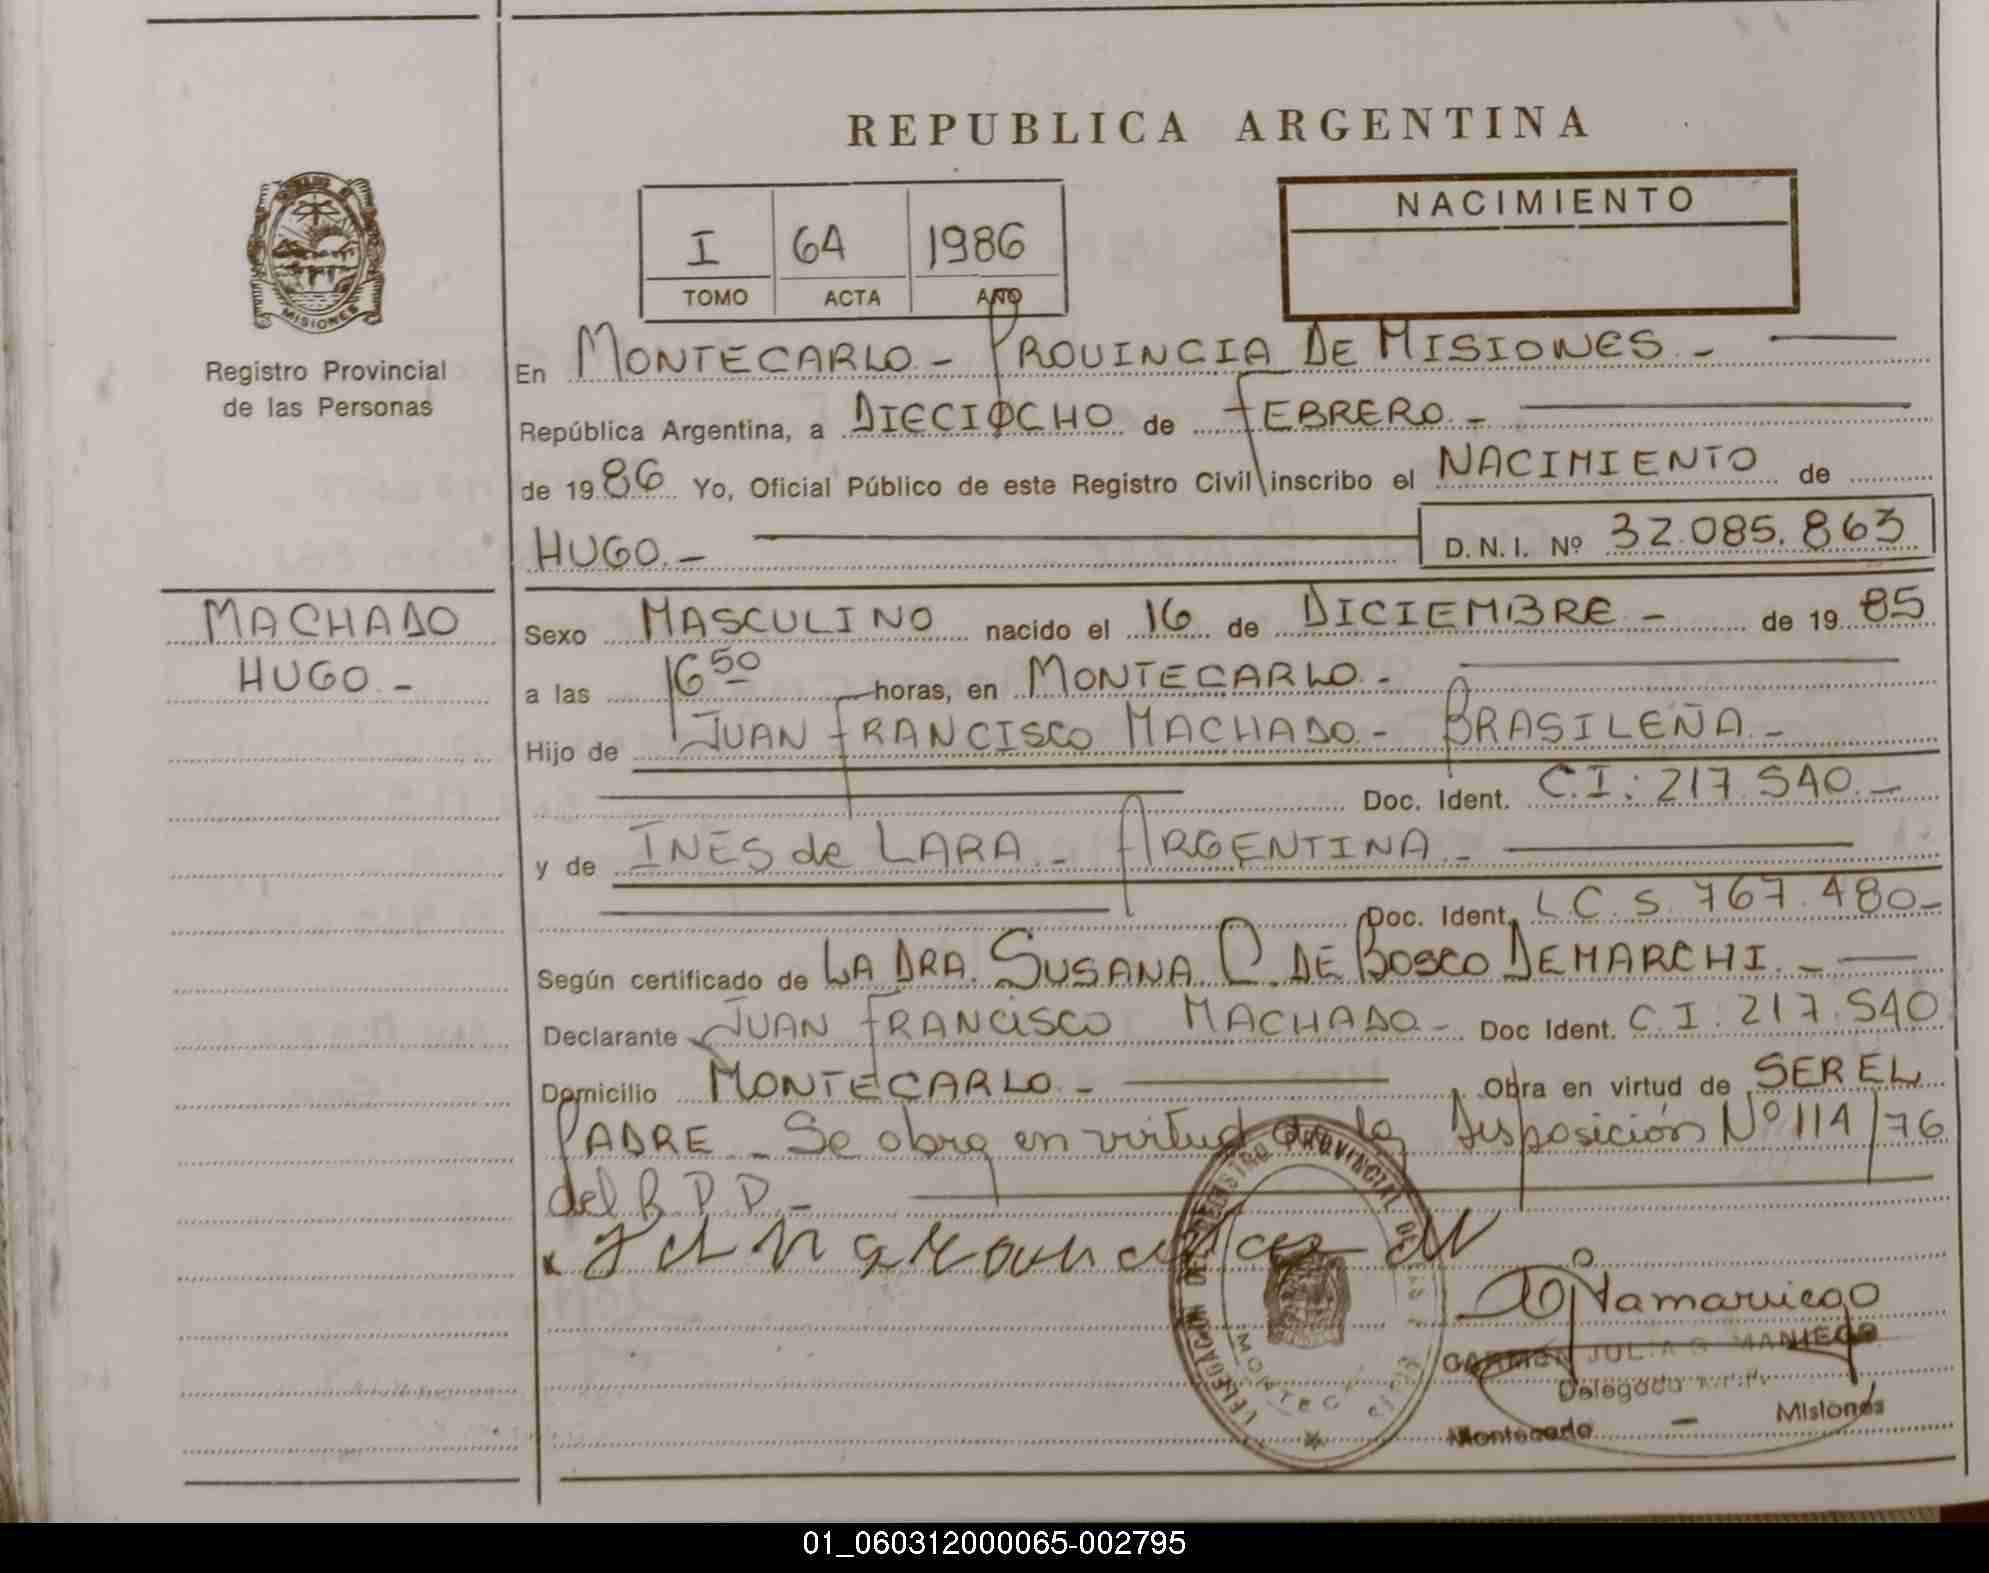 REPUBLICA ARGENTINA
NACIMIENTO
I 64 1986
TOMO ACTA AÑO
MISIONES
Registro Provincial
de las Personas
En MONTECARLO - PROVINCIA DE MISIONES -
República Argentina, a DIECIOCHO de FEBRERO -
de 1986 Yo, Oficial Público de este Registro Civil inscribo el NACIMIENTO de
HUGO - D.N.I. Nº 32.085.863
MACHADO
HUGO -
Sexo MASCULINO nacido el 16 de DICIEMBRE - de 1985
a las 16 50 horas, en MONTECARLO -
Hijo de JUAN FRANCISCO MACHADO - BRASILEÑA -
Doc. Ident. C.I: 217.540 -
y de INES de LARA - ARGENTINA -
Doc. Ident. L.C. 5.767.480 -
Según certificado de LA DRA. SUSANA C. DE BOSCO DEMARCHI -
Declarante JUAN FRANCISCO MACHADO - Doc Ident. C.I: 217.540
Domicilio MONTECARLO - Obra en virtud de SER EL
PADRE - Se obra en virtud de la Disposición Nº 114/76
del R.P.P. -
DELEGACION DEL REGISTRO PROVINCIAL DE LAS
CARMEN JULIA G MANIEGO
Delegada
Montecarlo - Misiones
01_060312000065-002795